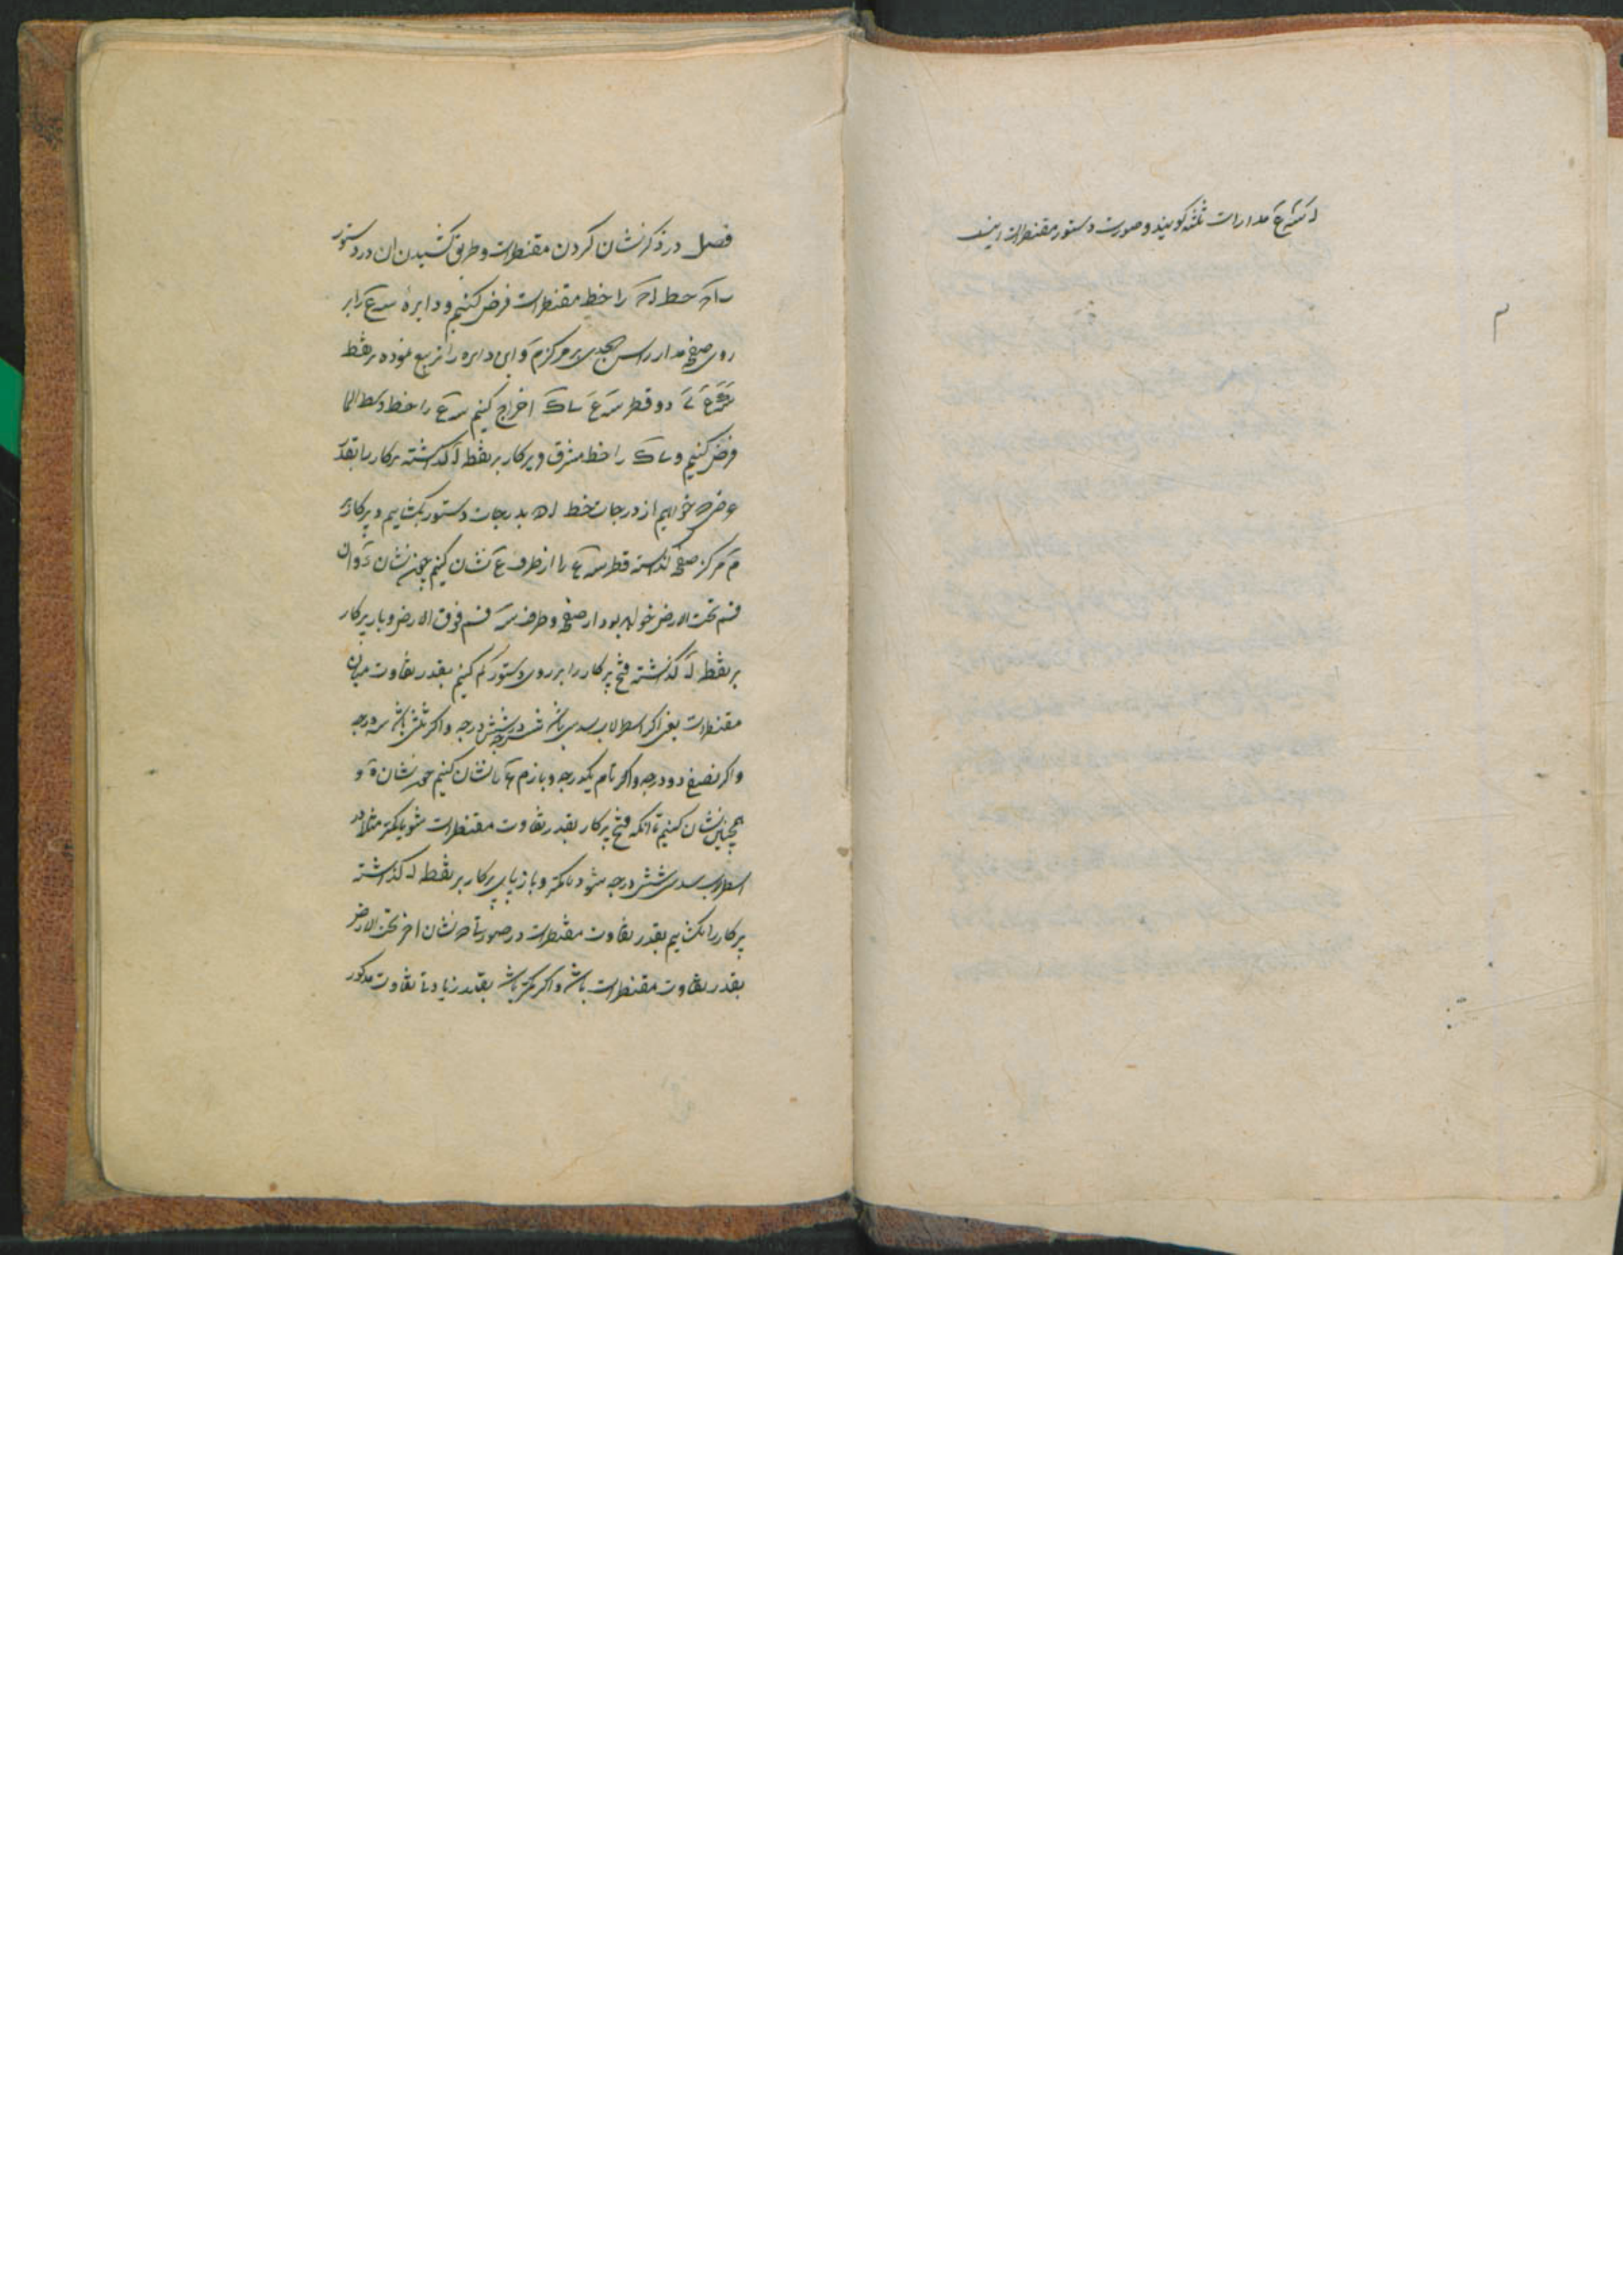 مدارات ثلثه كويند و صورت دستور مقنطرات اينست
م
فصل در ذكر نشان كردن مقنطرات و طريق كشيدن ان در دستور
را خط مقنطرات فرض كنيم و دايره سع را بر
روى صفحه مدار راس الجدى بر مركز م و اين دايره را تربيع نموده بر نقط
دو قطر سع اخراج كنيم سع را خط وسط السما
فرض كنيم و را خط مشرق و پركار بر نقط ا كذاشته پركار را بقدر
عرض كه خواهيم از درجات خط اه بدرجات دستور بكشاييم و پركار بر
م مركز صفحه كذاشته قطر سع را از طرف ع نشان كنيم چون نشان و ان
قسم تحت الارض خواهد بود از صفحه و طرف س قسم فوق الارض و باز پركار
بر نقط ا كذاشته فتح پركار را بر روى دستور كم كنيم بقدر تفاوت ميان
مقنطرات يعنى اكر اسطرلاب سدس باشد شش درجه و اكر ثلثى باشد سه درجه
و اكر نصفى دو درجه و اكر تام يكدرجه و باز نشان كنيم چون نشان ه و
همچنين نشان كنيم تا انكه فتح پركار بقدر تفاوت مقنطرات شود يا كمتر مثلا در
اسطرلاب سدسى شش درجه شود يا كمتر و باز پاى پركار بر نقط ا كذاشته
پركار را بكشاييم بقدر تفاوت مقنطرات در صورتى كه نشان اخر تحت الارض
بقدر تفاوت مقنطرات باشد و اكر كمتر باشد بقدر زيادتى تفاوت مذكور